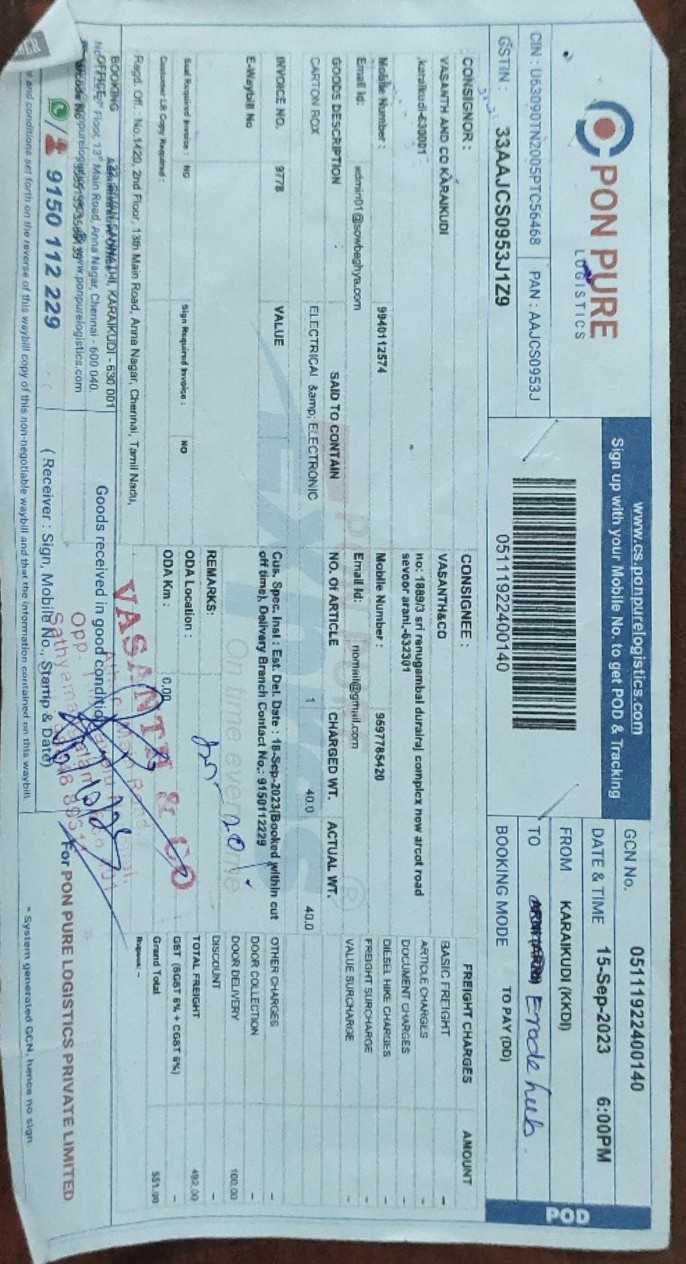 PON PURE
LOGISTICS
CIN : U63090TN2005PTC56468 PAN : AAJCS0953J
GSTIN : 33AAJCS0953J1Z9
www.cs.ponpurelogistics.com
Sign up with your Mobile No. to get POD & Tracking
05111922400140
GCN No. 05111922400140
DATE & TIME 15-Sep-2023 6:00PM
FROM KARAIKUDI (KKDI)
TO Erode hub.
BOOKING MODE TO PAY (DD)
POD
CONSIGNOR :
VASANTH AND CO KARAIKUDI
,karaikudi-630001
Mobile Number : 9940112574
Email Id: admin01@sowbaghya.com
CONSIGNEE :
VASANTH&CO
no: 1889/3 sri renugambal durairaj complex new arcot road
sevoor arani,-632301
Mobile Number : 9697785420
Email Id:
GOODS DESCRIPTION SAID TO CONTAIN NO. Of ARTICLE CHARGED WT. ACTUAL WT.
CARTON BOX ELECTRICAL &amp; ELECTRONIC 1 40.0 40.0
INVOICE NO. 9778 VALUE
E-Waybill No
Cus. Spec. Inst : Est. Del. Date : 18-Sep-2023(Booked within cut
off time), Delivery Branch Contact No.: 9150112229
REMARKS:
Seal Required Invoice : NO Sign Required Invoice : NO
Customer LR Copy Required :
ODA Location :
ODA Km : 0.00
FREIGHT CHARGES AMOUNT
BASIC FREIGHT -
ARTICLE CHARGES
DOCUMENT CHARGES
DIESEL HIKE CHARGES -
FREIGHT SURCHARGE -
VALUE SURCHARGE -
OTHER CHARGES
DOOR COLLECTION -
DOOR DELIVERY 100.00
DISCOUNT -
TOTAL FREIGHT 492.00
GST (SGST 6% + CGST 6%) -
Grand Total 551.00
Rupees: -
Regd. Off. : No.1420, 2nd Floor, 13th Main Road, Anna Nagar, Chennai, Tamil Nadu,
BOOKING
OFFICE
KARAIKUDI - 630 001
Floor, 13th Main Road, Anna Nagar, Chennai - 600 040.
www.ponpurelogistics.com
9150 112 229
Goods received in good condition
( Receiver : Sign, Mobile No., Stamp & Date)
VASANTH & CO
Opp.
For PON PURE LOGISTICS PRIVATE LIMITED
and conditions set forth on the reverse of this waybill copy of this non-negotiable waybill and that the information contained on this waybill
* System generated GCN, hence no sign.